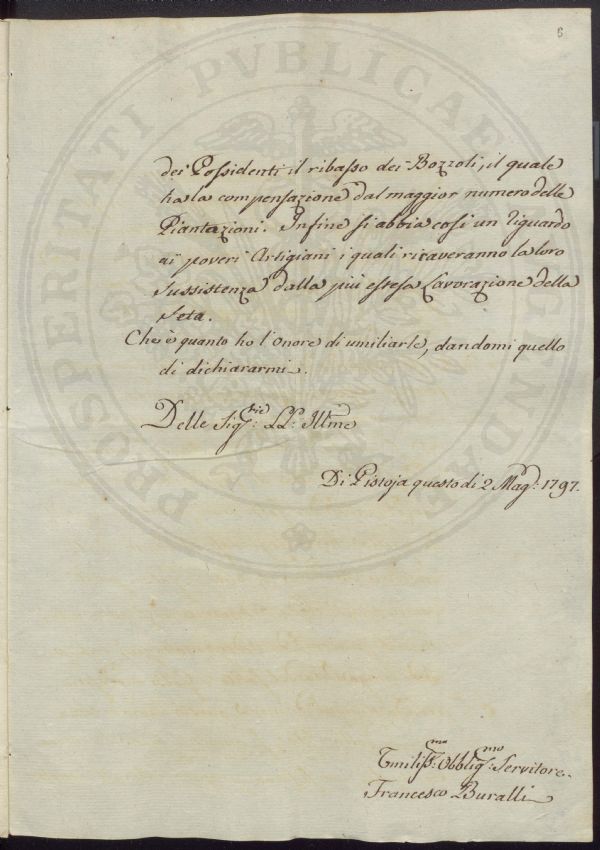 6
dei Possidenti il ribasso dei Bozzoli, il quale
ha la compensazione dal maggior numero delle
Piantazioni. Infine si abbia così un riguardo
ai poveri Artigiani i quali ricaveranno la loro
sussistenza dalla più estesa Lavorazione della
Seta.
Che è quanto ho l'onore di umiliarle, dandomi quello
di dichiararmi.
Delle Sig:rie LL: Ill:me
Di Pistoja questo dì 2 Mag:o 1797.
Umiliss:mo Obblig:mo Servitore.
Francesco Buralli
PROSPERITATI PVBLICAE AVGENDAE